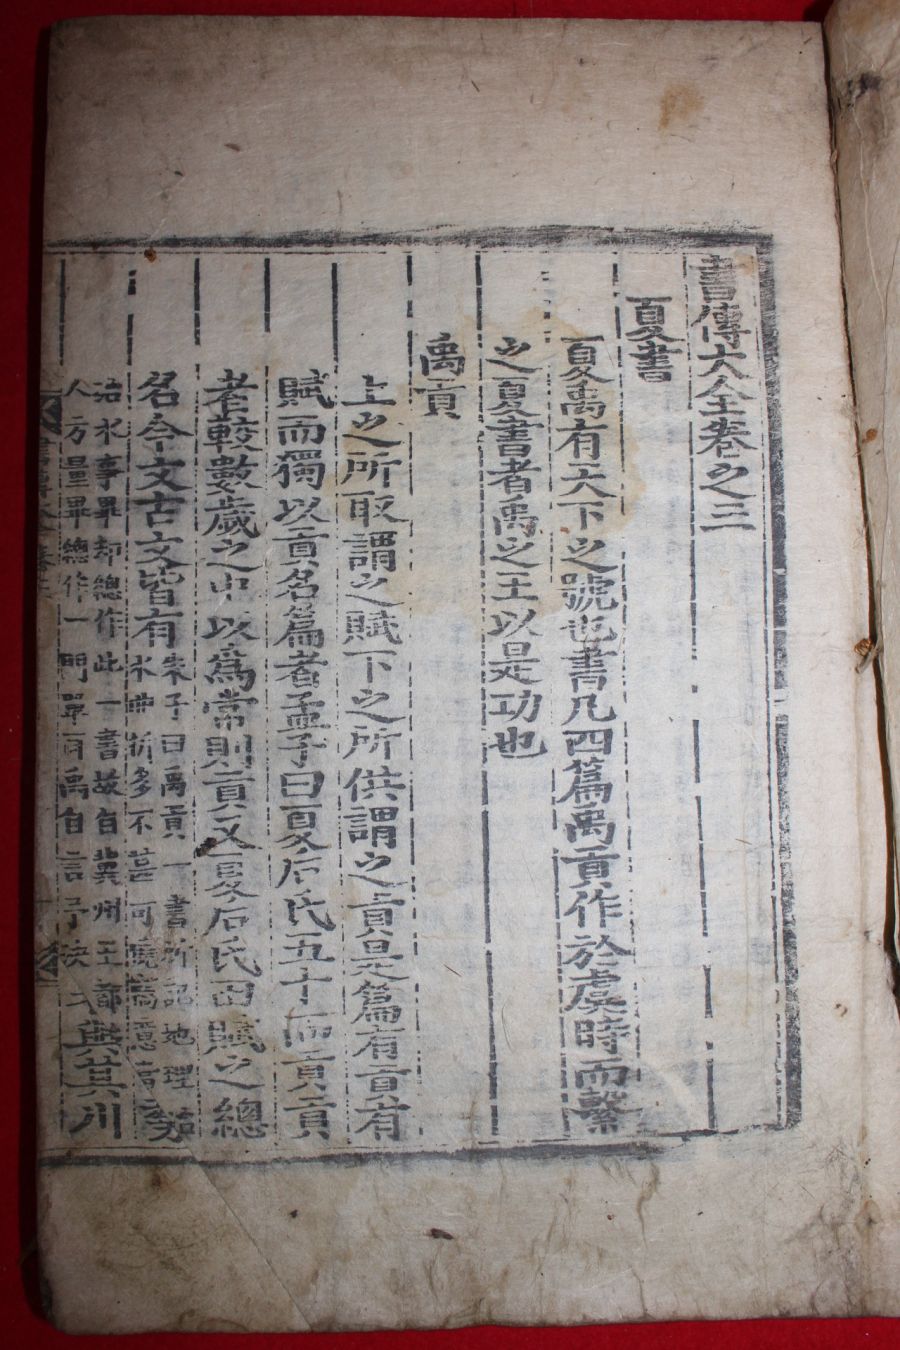 書傳大全卷之三
夏書
夏禹有天下之號也書凡四篇禹貢作於虞時而繫
之夏書者禹之王以是功也
禹貢
上之所取謂之賦下之所供謂之貢是篇有貢有
賦而獨以貢名篇者孟子曰夏后氏五十而貢貢
者較數歲之中以爲常則貢又夏后氏田賦之總
名今文古文皆有
朱子曰禹貢一書所記地理
治水曲折多不甚可曉竊意當
治水事畢却總作此一書故自冀州王都始
人方量畢總作一門單耳禹自言予決九
川